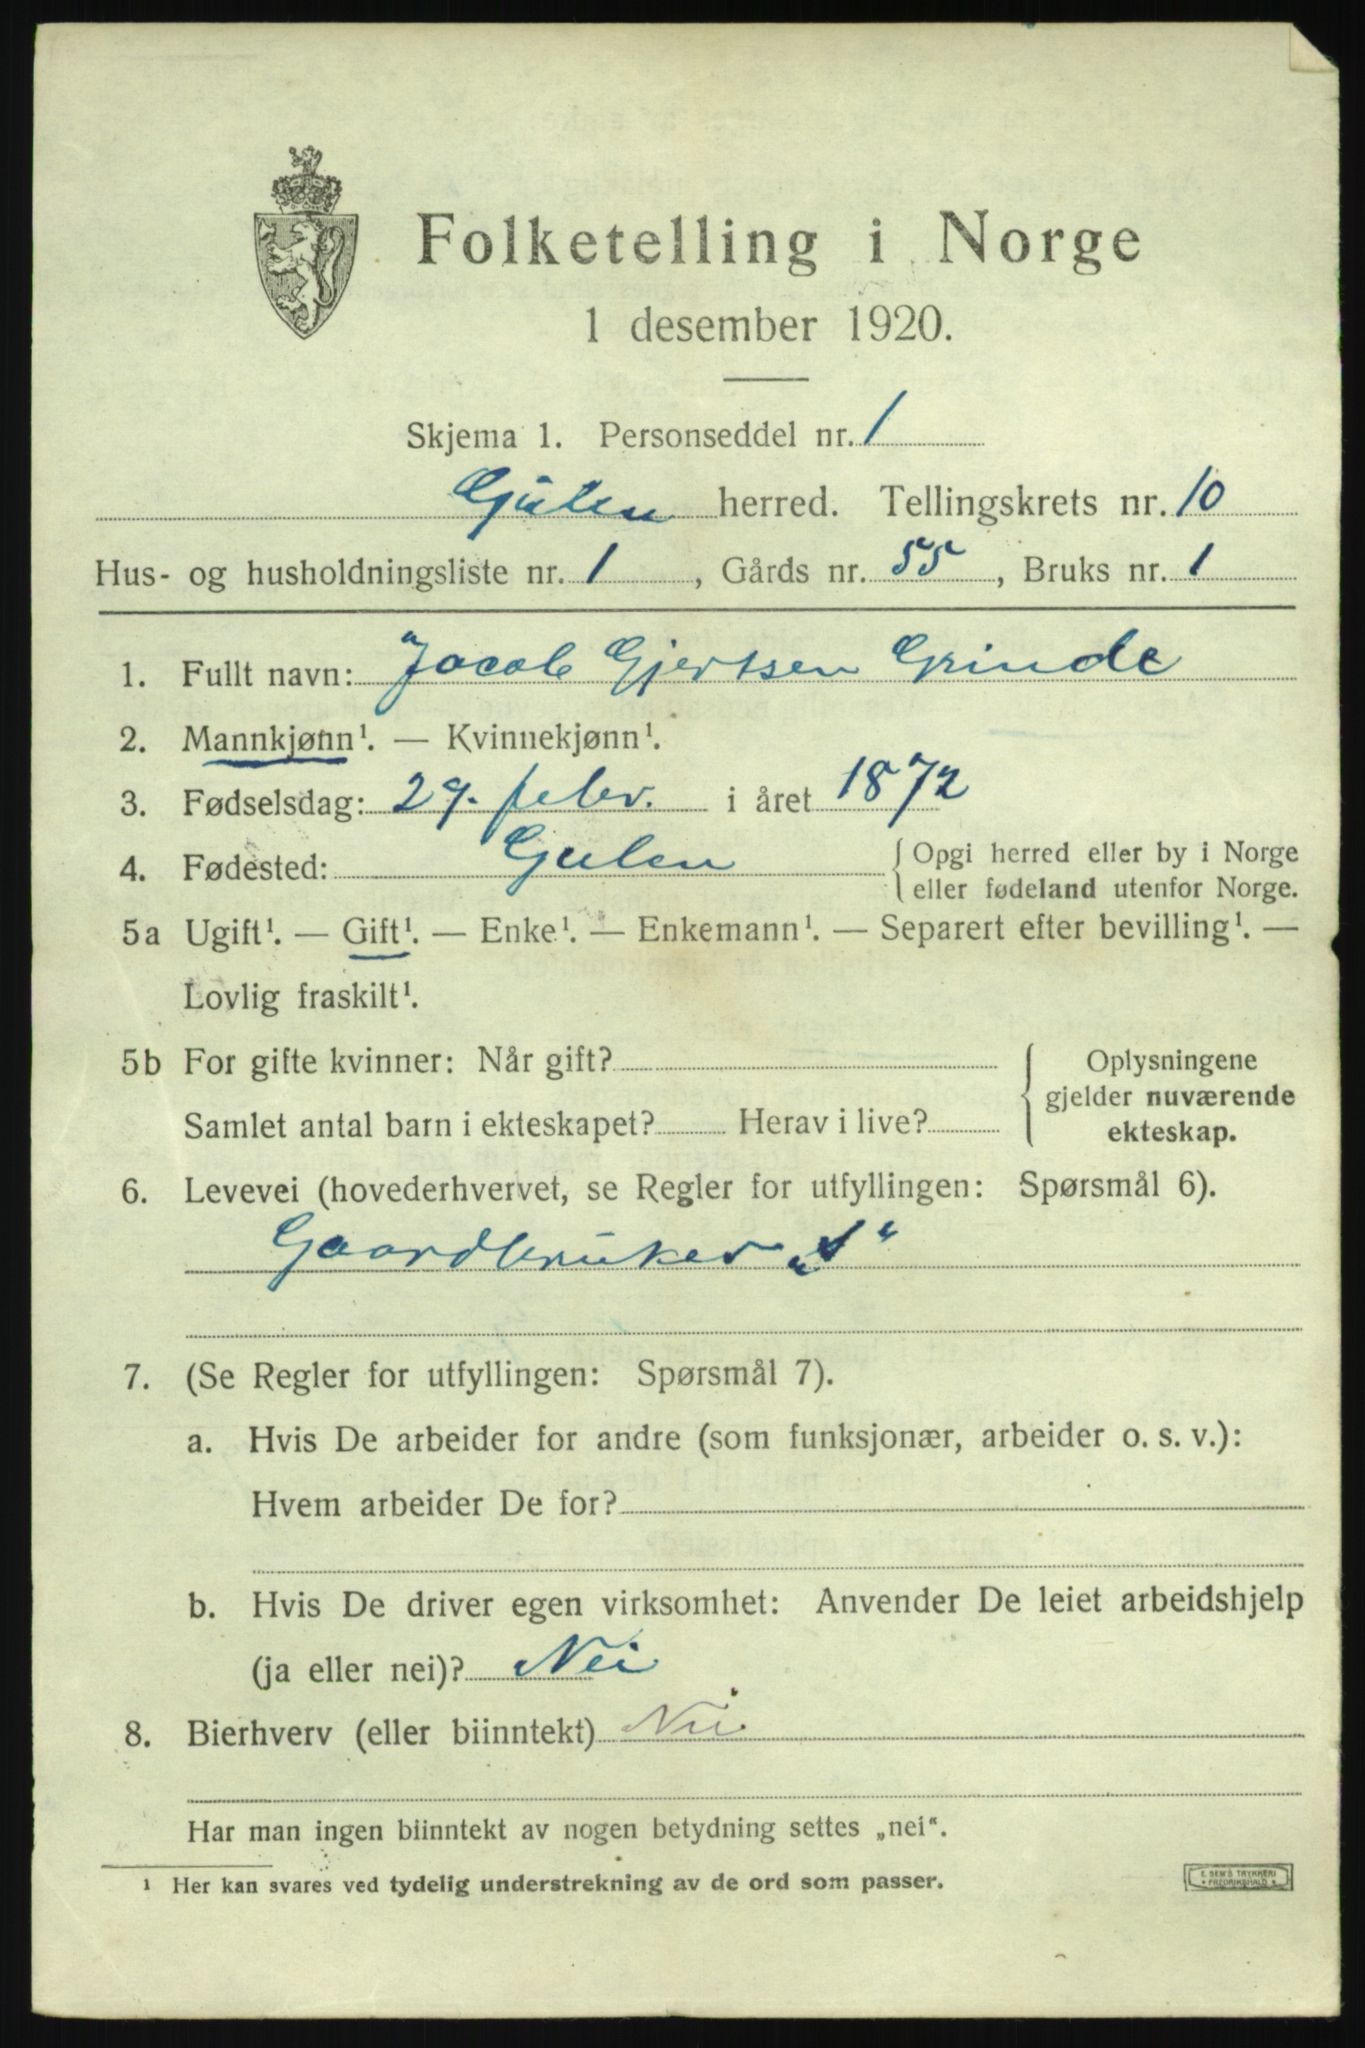 Folketelling i Norge
1 desember 1920.
Skjema 1. Personseddel nr. 1
Gulen herred. Tellingskrets nr. 10
Hus- og husholdningsliste nr. 1, Gårds nr. 55, Bruks nr. 1
1. Fullt navn: Jacob Gjertsen Grinde
2. Mannkjønn¹. — Kvinnekjønn¹.
3. Fødselsdag: 29. febr. i året 1872
4. Fødested: Gulen { Opgi herred eller by i Norge
eller fødeland utenfor Norge.
5a Ugift¹. — Gift¹. — Enke¹. — Enkemann¹. — Separert efter bevilling¹. —
Lovlig fraskilt¹.
5b For gifte kvinner: Når gift? { Oplysningene
gjelder nuværende
Samlet antal barn i ekteskapet? Herav i live? ekteskap.
6. Levevei (hovederhvervet, se Regler for utfyllingen: Spørsmål 6).
Gaardbruker „S“
7. (Se Regler for utfyllingen: Spørsmål 7).
a. Hvis De arbeider for andre (som funksjonær, arbeider o. s. v.):
Hvem arbeider De for?
b. Hvis De driver egen virksomhet: Anvender De leiet arbeidshjelp
(ja eller nei)? Nei
8. Bierhverv (eller biinntekt) Nei
Har man ingen biinntekt av nogen betydning settes „nei“.
¹ Her kan svares ved tydelig understrekning av de ord som passer.
E. SEM'S TRYKKERI
FREDRIKSHALD